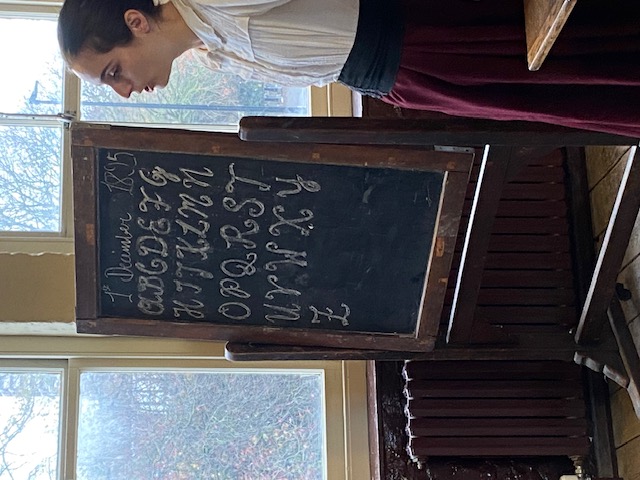 1st December
ABCDEFG
HIJKLMN
OPQRST
UVWXY
Z